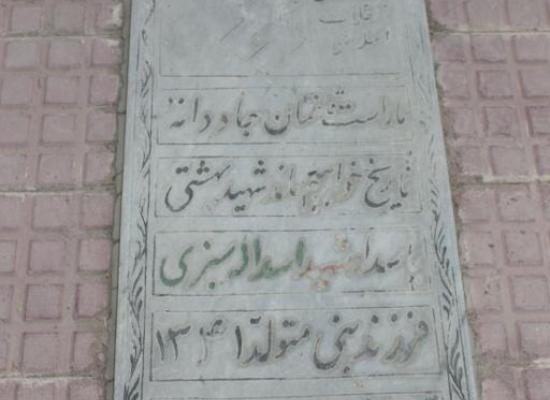 انقلاب
اسلامی
ما راست قامتان جاودانه
تاریخ خواهیم ماند شهید بهشتی
پاسدار شهید اسداله سبزی
فرزند بنی متولد ۱۳۴۱